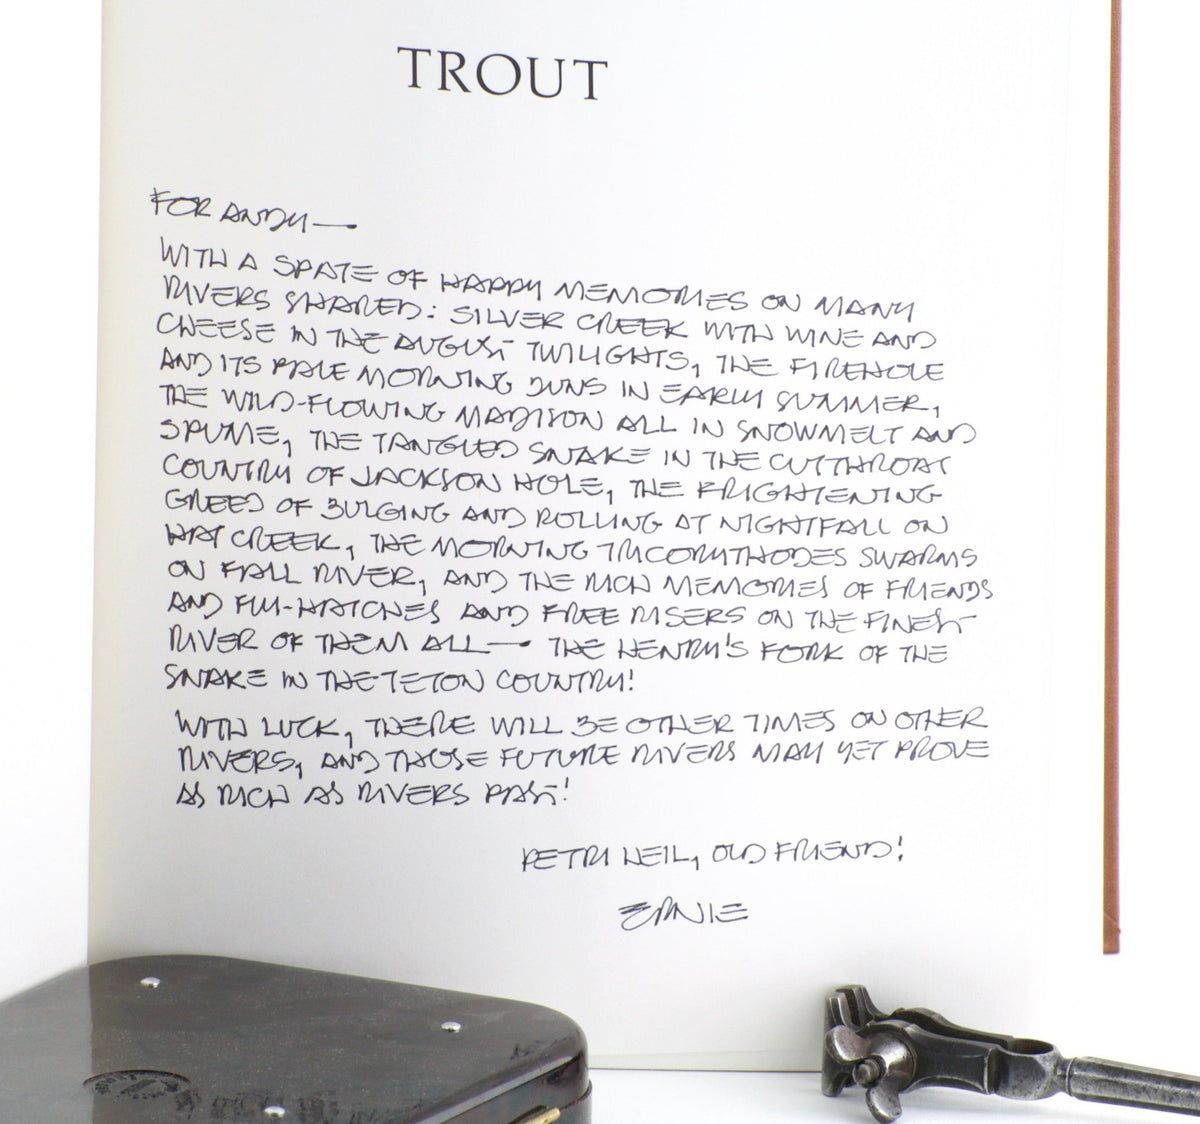 TROUT
FOR ANDY—
WITH A SPATE OF HAPPY MEMORIES ON MANY
RIVERS SHARED: SILVER CREEK WITH WINE AND
CHEESE IN THE AUGUST TWILIGHTS, THE FIREHOLE
AND ITS PALE MORNING DUNS IN EARLY SUMMER,
THE WILD-FLOWING MADISON ALL IN SNOWMELT AND
SPUME, THE TANGLED SNAKE IN THE CUTTHROAT
COUNTRY OF JACKSON HOLE, THE FRIGHTENING
GREED OF BULGING AND ROLLING AT NIGHTFALL ON
HAT CREEK, THE MORNING TRICORYTHODES SWARMS
ON FALL RIVER, AND THE RICH MEMORIES OF FRIENDS
AND FLY-HATCHES AND FREE RISERS ON THE FINEST
RIVER OF THEM ALL— THE HENRY'S FORK OF THE
SNAKE IN THE TETON COUNTRY!
WITH LUCK, THERE WILL BE OTHER TIMES ON OTHER
RIVERS, AND THOSE FUTURE RIVERS MAY YET PROVE
AS RICH AS RIVERS PAST!
PETRI HEIL, OLD FRIEND!
ERNIE